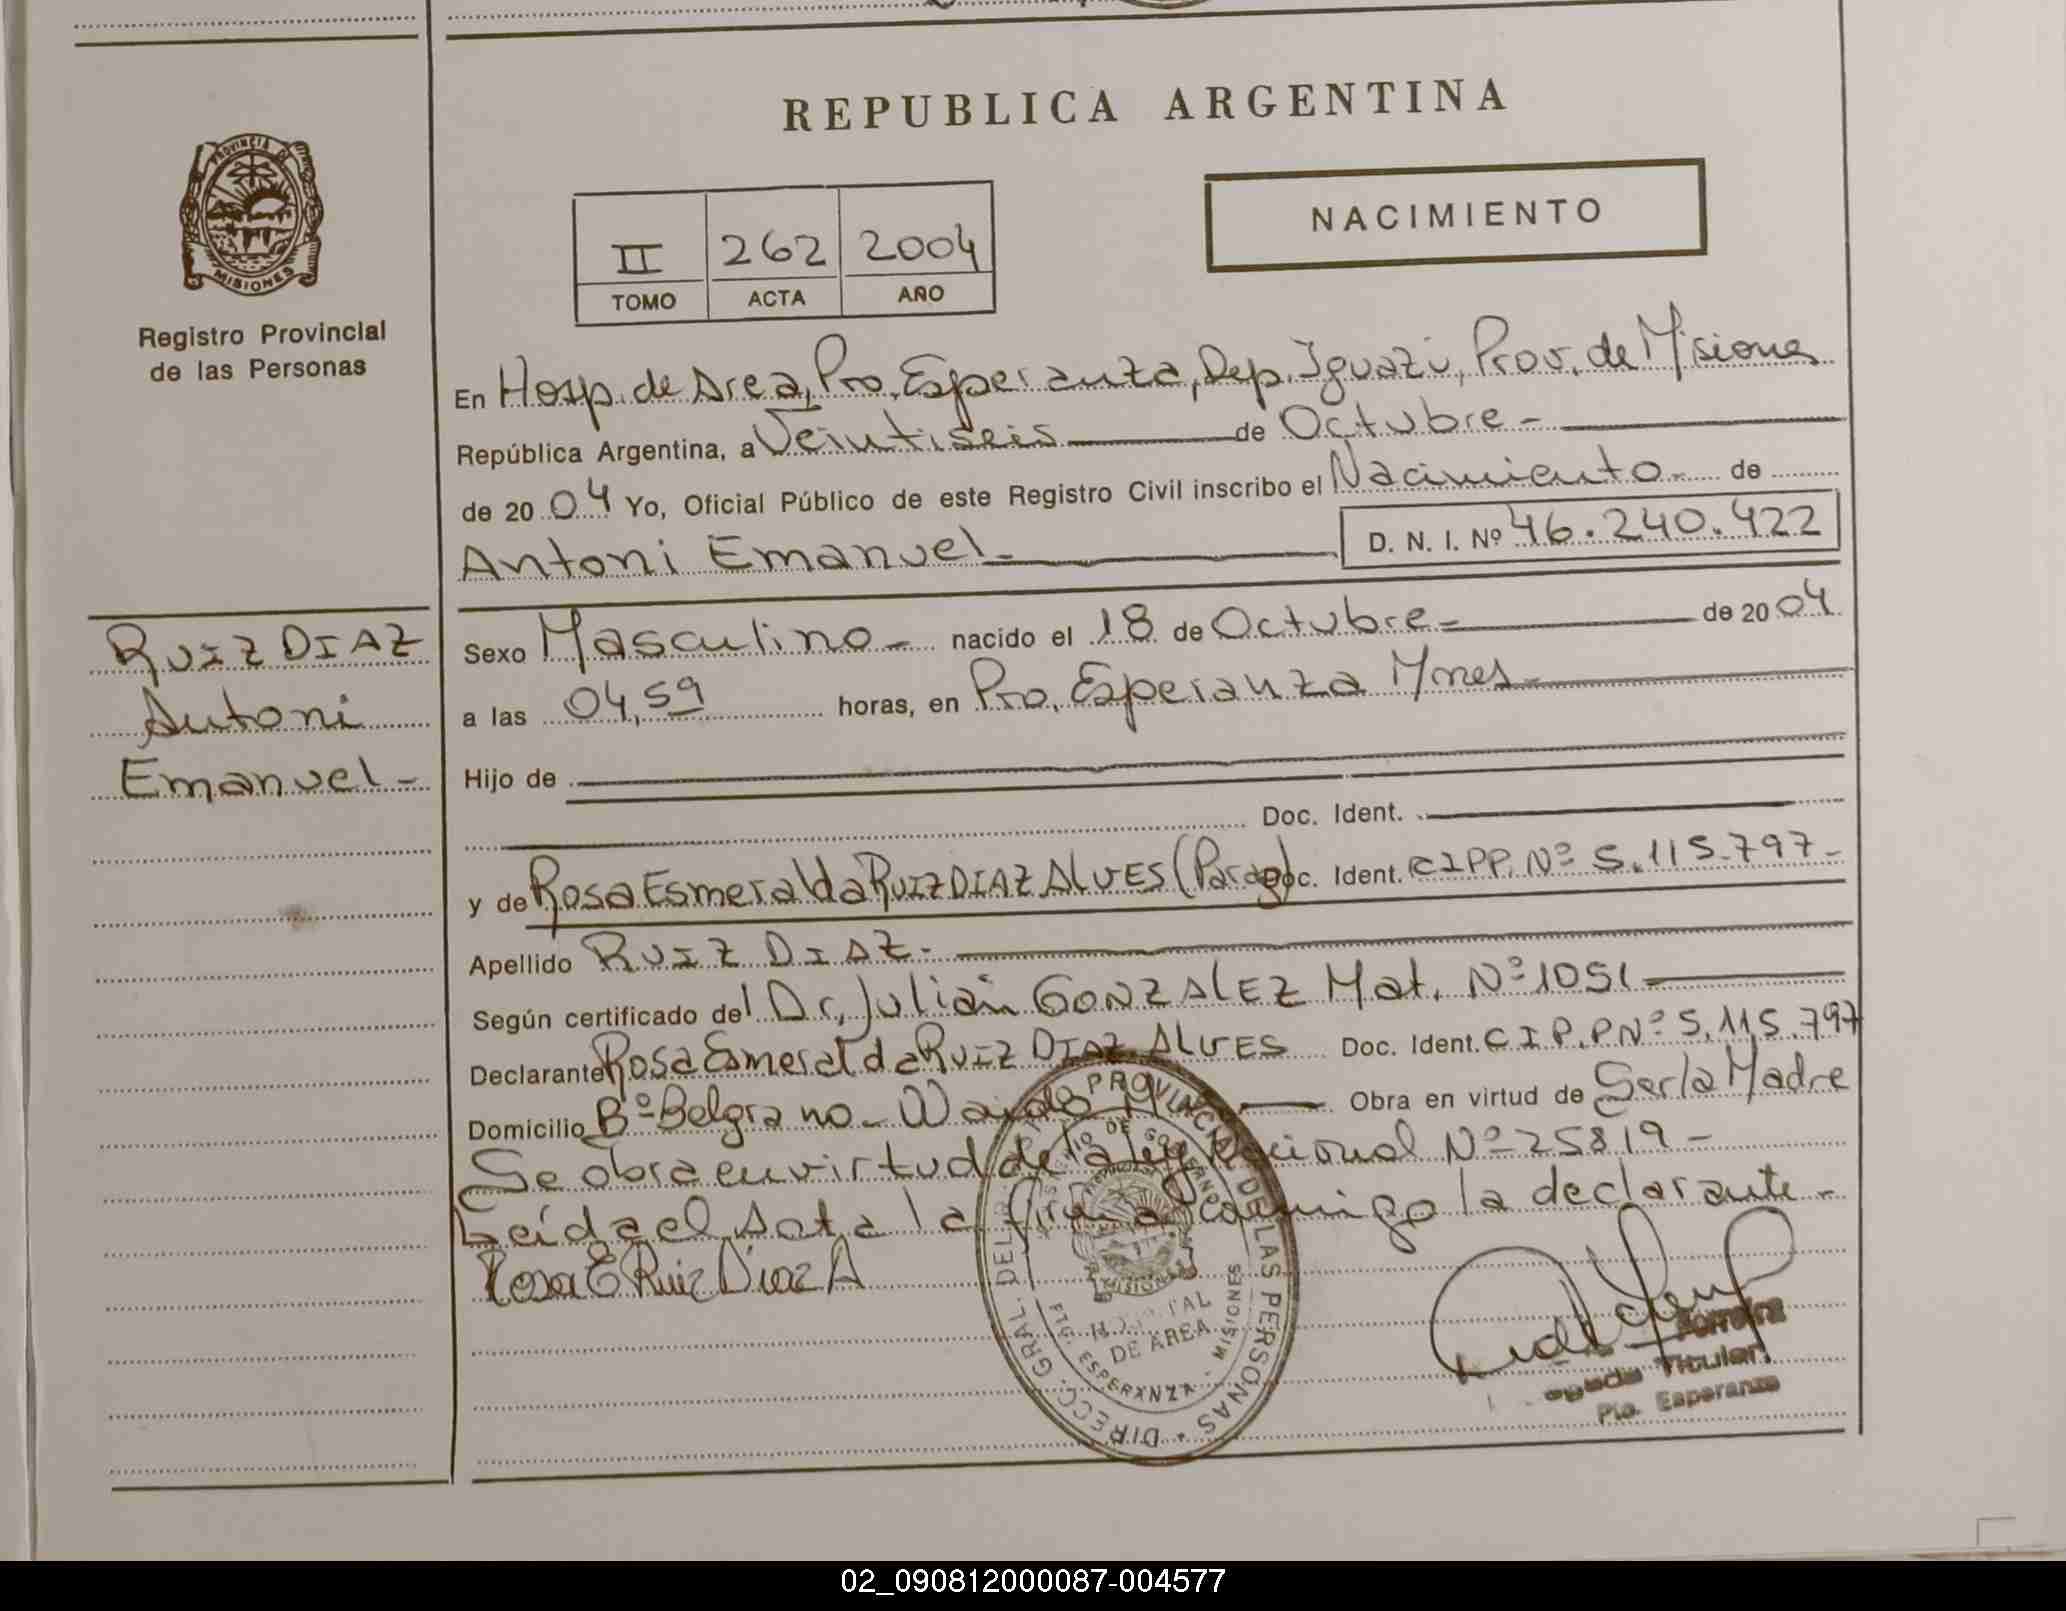 REPUBLICA ARGENTINA
NACIMIENTO
II 262 2004
TOMO ACTA AÑO
PROVINCIA DE
MISIONES
Registro Provincial
de las Personas
RUIZ DIAZ
Antoni
Emanuel -
En Hosp. de Area, Pto. Esperanza, Dep. Iguazú, Prov. de Misiones
República Argentina, a Veintiseis de Octubre -
de 2004 Yo, Oficial Público de este Registro Civil inscribo el Nacimiento - de
Antoni Emanuel - D. N. I. Nº 46.240.422
Sexo Masculino - nacido el 18 de Octubre - de 2004
a las 04,59 horas, en Pto. Esperanza Mnes -
Hijo de
Doc. Ident.
y de Rosa Esmeralda RUIZ DIAZ ALVES (Parag) Doc. Ident. CIPP. Nº 5.115.797-
Apellido RUIZ DIAZ.
Según certificado del Dr. Julián GONZALEZ Mat. Nº 1051
Declarante Rosa Esmeralda RUIZ DIAZ ALVES Doc. Ident. C I P. P Nº 5.115.797
Domicilio Bº Belgrano - Wanda Obra en virtud de Ser la Madre
Se obra en virtud de la ley Nacional Nº 25819 -
Leída el Acta la firma conmigo la declarante -
Rosa E Ruiz Diaz A
DIRECC. GRAL. DEL PROVINCIAL DE LAS PERSONAS
DE GOBIERNO
MISIONES
HOSPITAL
DE AREA
PTO. ESPERANZA - MISIONES
Ferreira
Titular
Pto. Esperanza
02_090812000087-004577